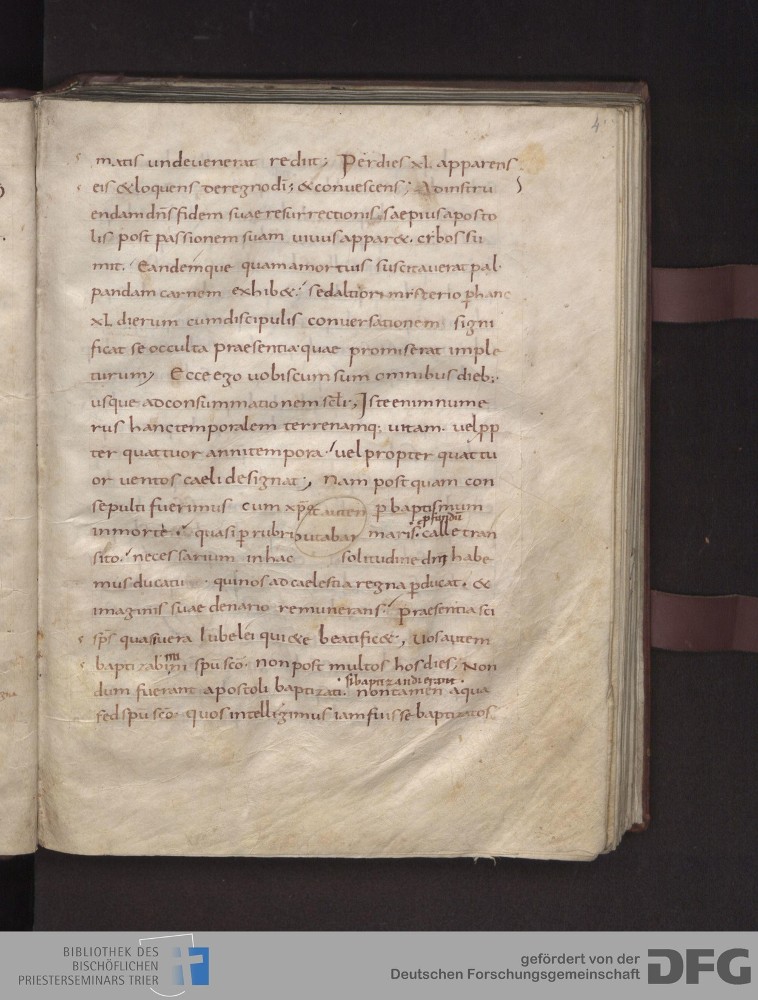 4
matis undeuenerat rediit; Per dies xl. apparens
eis & loquens de regno dī; & conuescens; Ad instru
endam dn̄s fidem suae resurrectionis, saepius aposto
lis post passionem suam uiuus apparet.
mit. Eandemque quam a mortuis suscitauerat pal
pandam carnem exhib&; sed altiori misterio ꝑ hanc
xl dierum cum discipulis conuersationem signi
ficat se occulta praesentia quae promiserat imple
turum; Ecce ego uobiscum sum omnibus dieb;
usque ad consummationem saeculi; Iste enim nume
rus hanc temporalem terrenamq; uitam. uel ꝓp
ter quattuor anni tempora. uel propter quattu
or uentos caeli designat; Nam postquam con
sepulti fuerimus cum xp̄o ꝑ baptismum
in morte. quasi ꝑ rubri maris calle tran
sito necessarium in hac solitudine dn̄i habe
mus ducatu. qui nos ad caelestia regna ꝑducat. &
imaginis suae denario remunerans. praesentia sci
sp̄s quasi uera iubelei quiete beatific&; Uos autem
baptizabimini spū sc̄o. non post multos hos dies; Non
dum fuerant apostoli baptizati. non tamen aqua
sed spū sc̄o. quos intelligimus iam fuisse baptizatos.
BIBLIOTHEK DES
BISCHÖFLICHEN
PRIESTERSEMINARS TRIER
gefördert von der
Deutschen Forschungsgemeinschaft
DFG